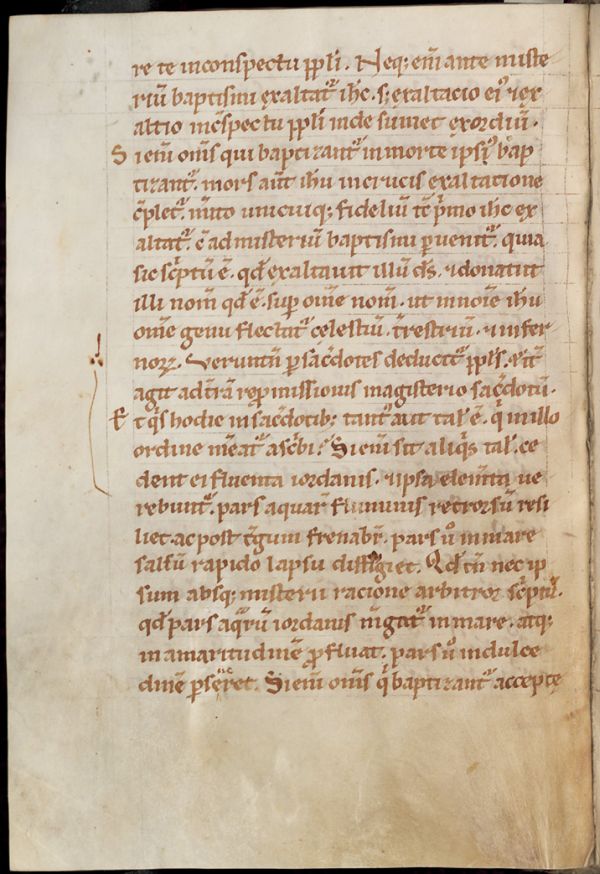 re te inconspectu ppl̄i. Neq; em̄ ante miste
riū baptismi exaltat᷑ ih̄c. s; exaltacio ei᷒ ⁊ ex
altio inc̄spectu ppl̄i inde sumet exordiū.
Siem̄ om̄s qui baptizant᷑ in morte ipsi᷒ bap
tizant᷑. mors aut̄ ihū incrucis exaltatione
c̄plet᷑. in̄ito unicuiq; fideliū tc̄ p̄mo ih̄c ex
altat᷑. c̄ ad misteriū baptismi puenit᷑. quia
sic sc̄ptū ē. qd̄ exaltauit illū ds̄. ⁊ donauit
illi nom̄ qd̄ ē. sup om̄e nom̄. ut in noīe ihū
om̄e genu flectat᷑ cęlestiū. t̄restriū. ⁊ infer
norꝝ. Veruntn̄ p sac̄dotes deducit᷑ ppl̄s. ⁊ it̄
agit ad t̄rā repmissionis magisterio sac̄dotū.
Et q̄s hodie in sac̄dotib; tant᷒ aut tal̄ ē. q̄ in illo
ordine m̄eat᷑ asc̄bi? Siem̄ sit aliq̄s tal̄. ce
dent ei fluenta iordanis. ⁊ ipsa elem̄ta ue
rebunt᷑. pars aquar̄ fluminis retrorsū resi
liet. ac post t̄gum frenabr̄. pars u᷒ in mare
salsū rapido lapsu diffugiet. Qd̄ tn̄ nec ip
sum absq; misterii racione arbitror sc̄ptū.
qd̄ pars aq̄rū iordanis m̄git᷑ in mare. atq;
in amaritudinē pfluat. pars u᷒ in dulce
dine pseueret. Siem̄ om̄s q̄ baptizant᷑ accepte